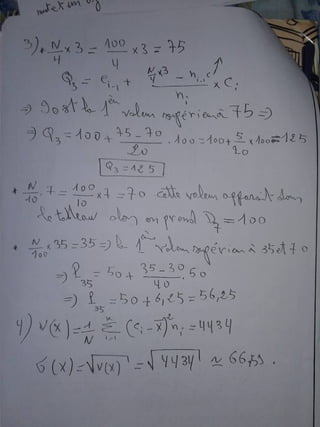 3) * N/4 × 3 = 100/4 × 3 = 75
Q₃ = e_{i-1} + (N/4 × 3 - n_{i-1}c)/n_i · C_i
⇒ 90 est la 1ère valeur supérieur à 75 ⇒
⇒ Q₃ = 100 + (75 - 70)/20 · 100 = 100 + 5/20 × 100 = 125
Q₃ = 125
* N/10 · 7 = 100/10 × 7 = 70 cette valeur apparait dans
le tableau alors on prend D₇ = 100
* N/100 × 35 = 35 ⇒ la 1ère valeur supérieur à 35 et 70
⇒ P₃₅ = 50 + (35 - 30)/40 · 50
⇒ P₃₅ = 50 + 6,25 = 56,25
4) V(x) = 1/N Σ_{i=1}^{k} (c_i - x̄)² n_i = 4434
σ(x) = √V(x) = √4434 ≃ 66,59.